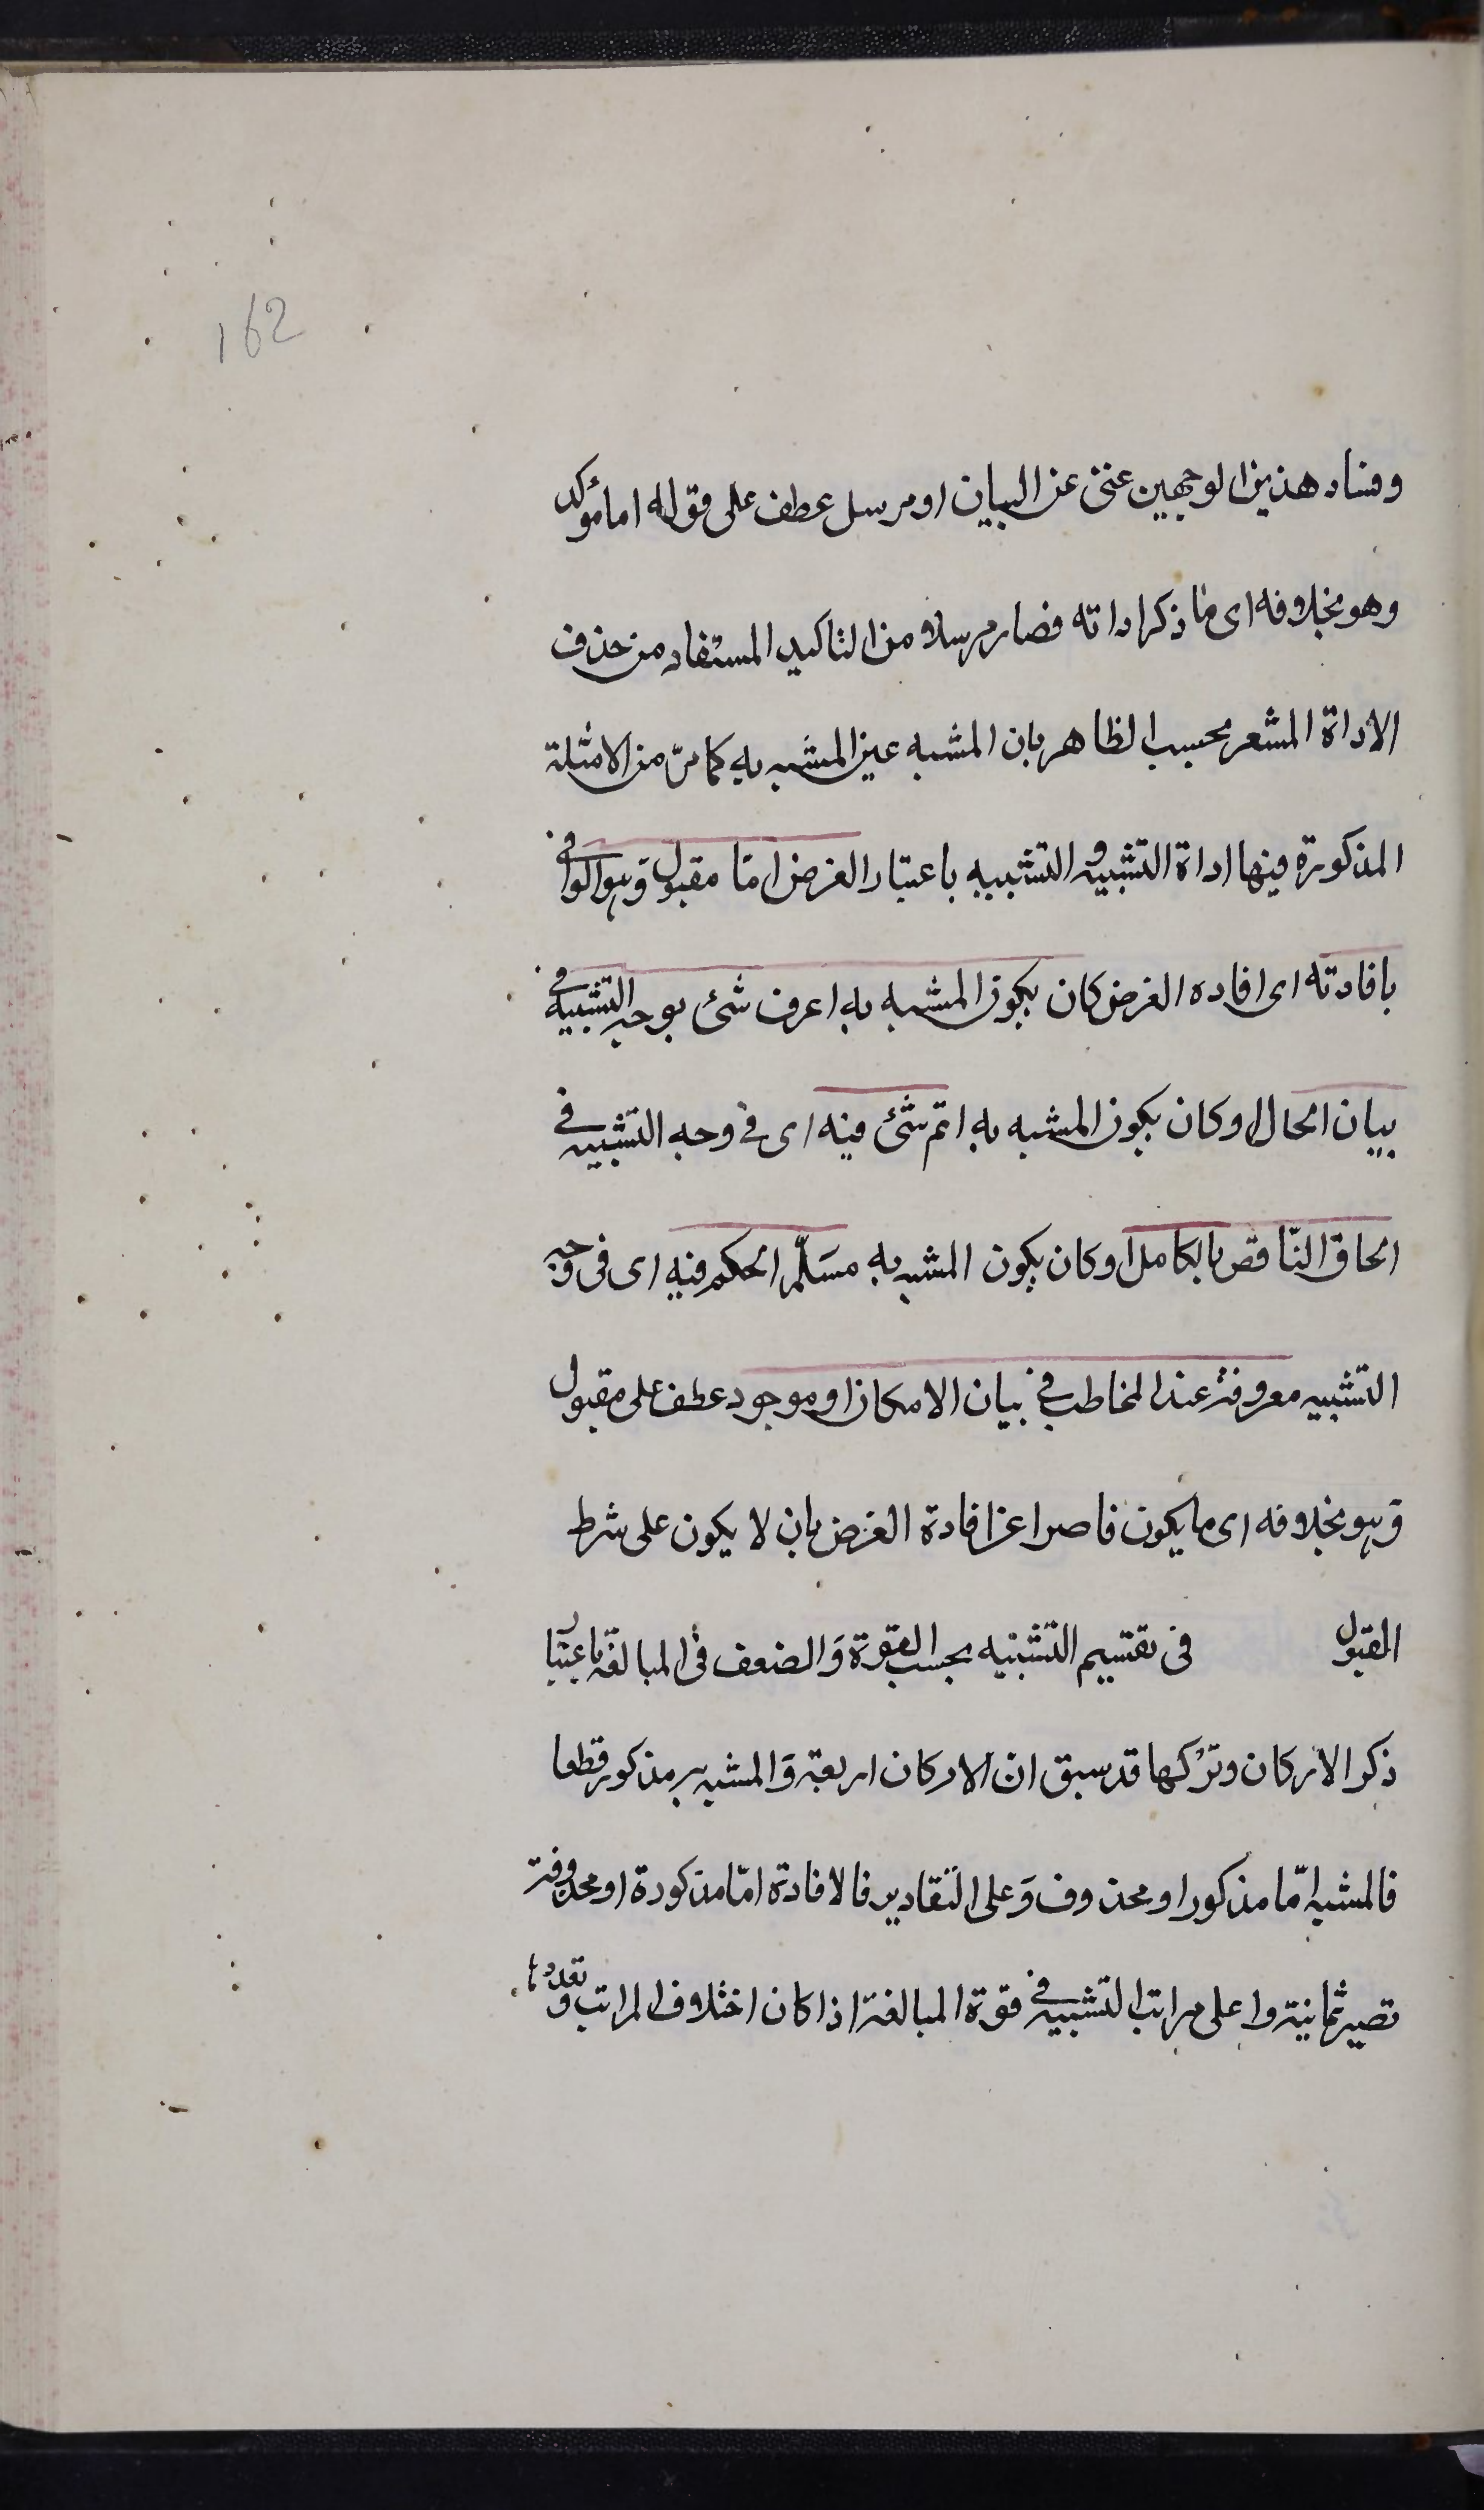 162
وفساد هذين الوجهين غنى عن البيان او مرسل عطف على قوله اما مؤكد
وهو بخلافه اى ما ذكر اداته فصار مرسلا من التاكيد المستفاد من حذف
الاداة المشعر بحسب الظاهر بان المشبه عين المشبه به كما مرّ من الامثلة
المذكورة فيها اداة التشبيه و التشبيه باعتبار الغرض امّا مقبول وَهو الوافى
بافادته اى افاده الغرض كان يكون المشبه به اعرف شئ بوجه التشبيه فى
بيان الحال او كان يكون المشبه به اتم شئ فيه اى فى وجه التشبيه فى
الحاق النّاقص بالكامل او كان يكون المشبه به مسَلّم الحكم فيه اى فى وجه
التشبيه معروفة عند المخاطب فى بيان الامكان او موجود عطف على مقبول
وَهو بخلافه اى ما يكون قاصرا عن افادة الغرض بان لا يكون على شرط
المقبول فى تقسيم التشبيه بحسب القوة وَالضعف فى المبالغة باعتبار
ذكر الاركان وتركها قد سبق ان الاركان اربعة وَالمشبه به مذكور قطعا
فالمشبه امّا مذكور او محذوف وَعلى التقادير فالافادة امّا مذكورة او محذوفة
تصير ثمانية واعلى مراتب التشبيه فى قوة المبالغة اذا كان اختلاف المراتب و تعددها